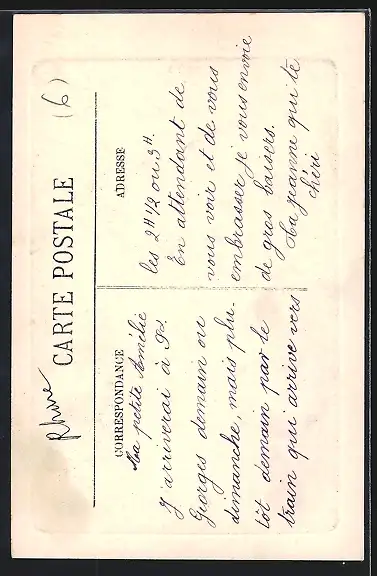 Rhône
(6)
CARTE POSTALE
CORRESPONDANCE
Ma petite Amélie
J'arriverai à
Georges demain ou
dimanche, mais plu-
tôt demain par le
train qui arrive vers
ADRESSE
les 2H 1/2 ou 3H.
En attendant de
vous voir et de vous
embrasser je vous envoie
de gros baisers.
Ta Jeanne qui te
chéri